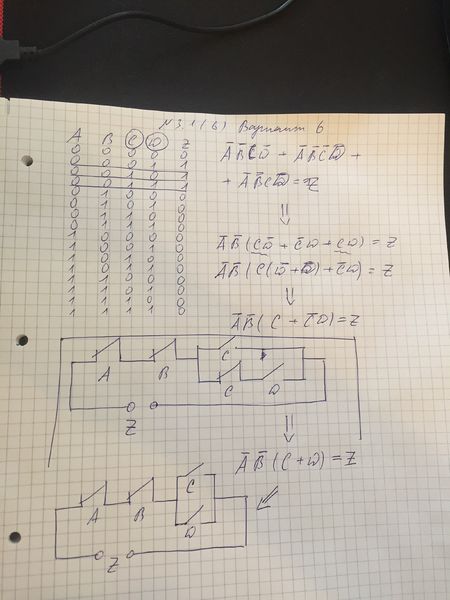 №3.1(б) Вариант 6
A B C D Z
0 0 0 0 0
0 0 0 1 1
0 0 1 0 1
0 0 1 1 1
0 1 0 0 0
0 1 0 1 0
0 1 1 0 0
0 1 1 1 0
1 0 0 0 0
1 0 0 1 0
1 0 1 0 0
1 0 1 1 0
1 1 0 0 0
1 1 0 1 0
1 1 1 0 0
1 1 1 1 0
A̅B̅CD̅ + A̅B̅C̅D +
+ A̅B̅CD = Z
⇓
A̅B̅(CD̅ + C̅D + CD) = Z
A̅B̅(C(D̅+D) + C̅D) = Z
⇓
A̅B̅(C + C̅D) = Z
A B C
C D
Z
⇓
A̅B̅(C+D) = Z
A B C
D
Z